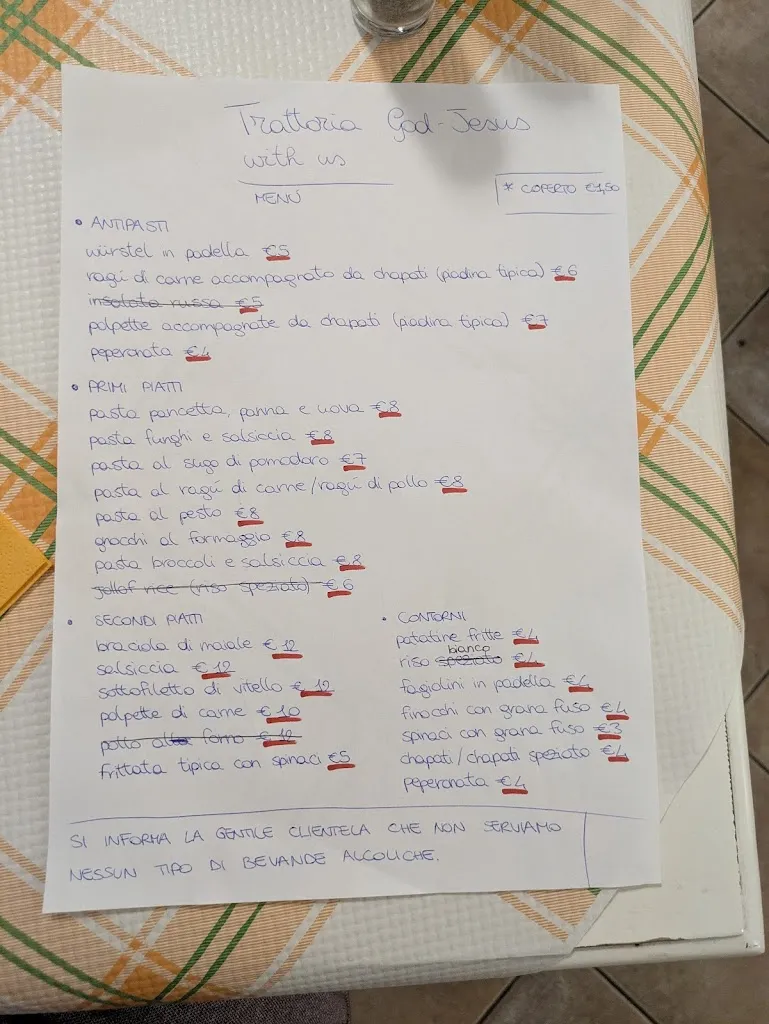 Trattoria God-Jesus
with us
MENÙ
* COPERTO €1,50
• ANTIPASTI
würstel in padella €5
ragú di carne accompagnato da chapati (piadina tipica) €6
insalata russa €5
polpette accompagnate da chapati (piadina tipica) €7
peperonata €4
• PRIMI PIATTI
pasta pancetta, panna e uova €8
pasta funghi e salsiccia €8
pasta al sugo di pomodoro €7
pasta al ragú di carne/ragú di pollo €8
pasta al pesto €8
gnocchi al formaggio €8
pasta broccoli e salsiccia €8
jollof rice (riso speziato) €6
• SECONDI PIATTI
braciola di maiale €12
salsiccia €12
sottofiletto di vitello €12
polpette di carne €10
pollo al forno €12
frittata tipica con spinaci €5
• CONTORNI
patatine fritte €4
bianco
riso speziato €4
fagiolini in padella €4
finocchi con grana fuso €4
spinaci con grana fuso €3
chapati/chapati speziato €4
peperonata €4
SI INFORMA LA GENTILE CLIENTELA CHE NON SERVIAMO
NESSUN TIPO DI BEVANDE ALCOLICHE.